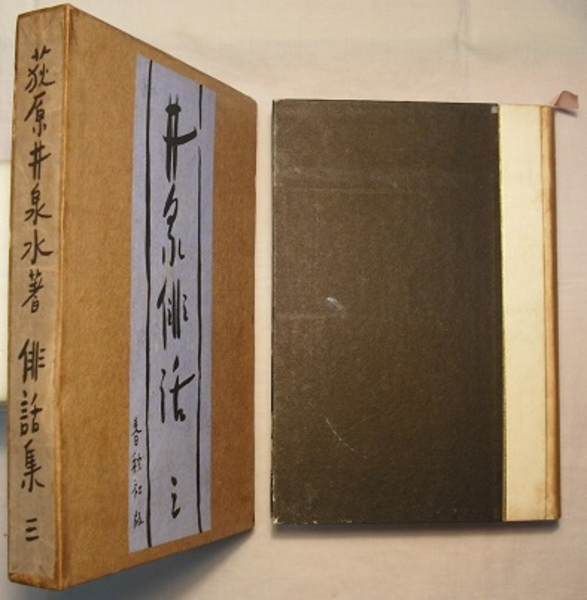 荻原井泉水著 俳話集 三
井泉俳話 三
春秋社版